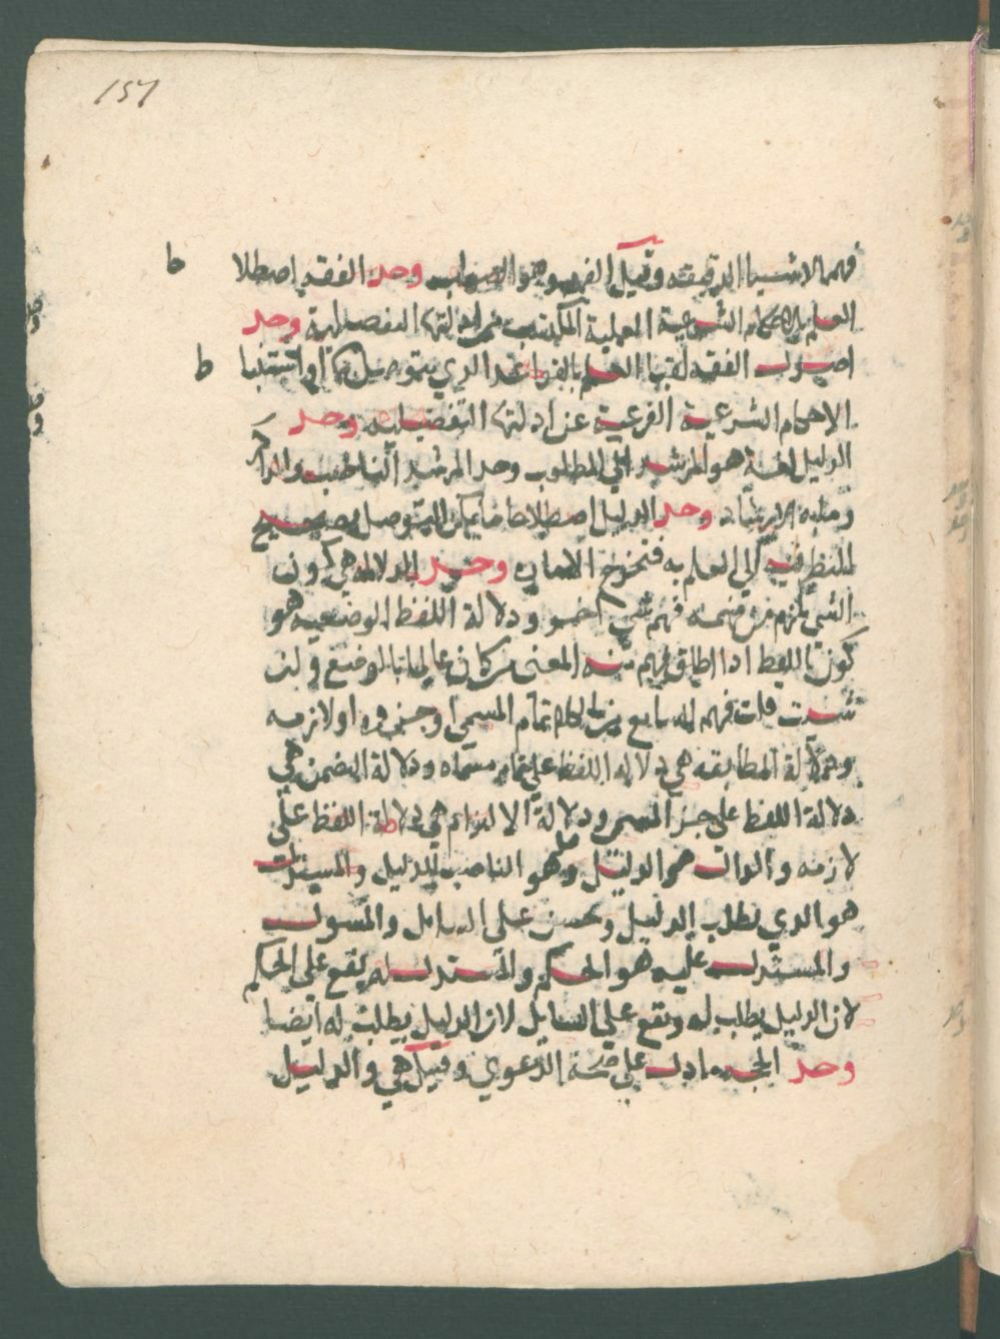 157
فهم الاشيا الدقيقه وقيل الفهم وهو الصواب وحد الفقه اصطلا
ط
العلم بالاحكام الشرعية العملية المكتسب من ادلتها التفصيلية وحد
اصول الفقه لقبا العلم بالقواعد الدي يتوصل بها الى استنبا
ط
الاحكام الشرعية الفرعية عن ادلتها التفصيليه وحد
الدليل لغة هو المرشد الى المطلوب وحد المرشد الناصب والداكر
وما به الارشاد وحد الدليل اصطلاحا ما يمكن التوصل بصحيح
النظر فيه الى العلم به فتخرج الاماره وحد الدلاله هي كون
الشي يلزم من فهمه فهم شي اخر ودلالة اللفظ الوضعيه هو
كون اللفظ ادا اطلق فهم منه المعنى من كان عالما بالوضع وان
شيت قلت فهم السامع من الكلام تمام المسمى او جزوه او لازمه
ودلالة المطابقه هي دلاله اللفظ على تمام مسماه ودلالة التضمن هي
دلالة اللفظ على جز المسمى ودلالة الالتزام هي دلالة اللفظ على
لازمه والدال هو الدليل وهو الناصب للدليل والمستدل
هو الدي يطلب الدليل ويحسن على السايل والمسول
والمستدل عليه هو الحكم والمستدل له يقع على الحكم
لان الدليل يطلب له ويقع على السايل لان الدليل يطلب له ايضا
وحد الحجه ما دل على صحة الدعوي وقيل هي والدليل